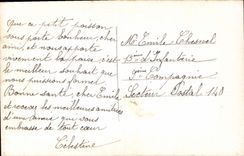 Que ce petit poisson
vous porte bonheur, cher
ami, et nous apporte
vivement la paix, c'est
le meilleur souhait que
nous puissons former
Bonne santé, cher Emile
et recevez les meilleures amitiés
d'une amie qui vous
embrasse de tout cœur
Célestine
Mr Emile Chesnel
d'Infanterie
9ème Compagnie
Secteur Postal 140